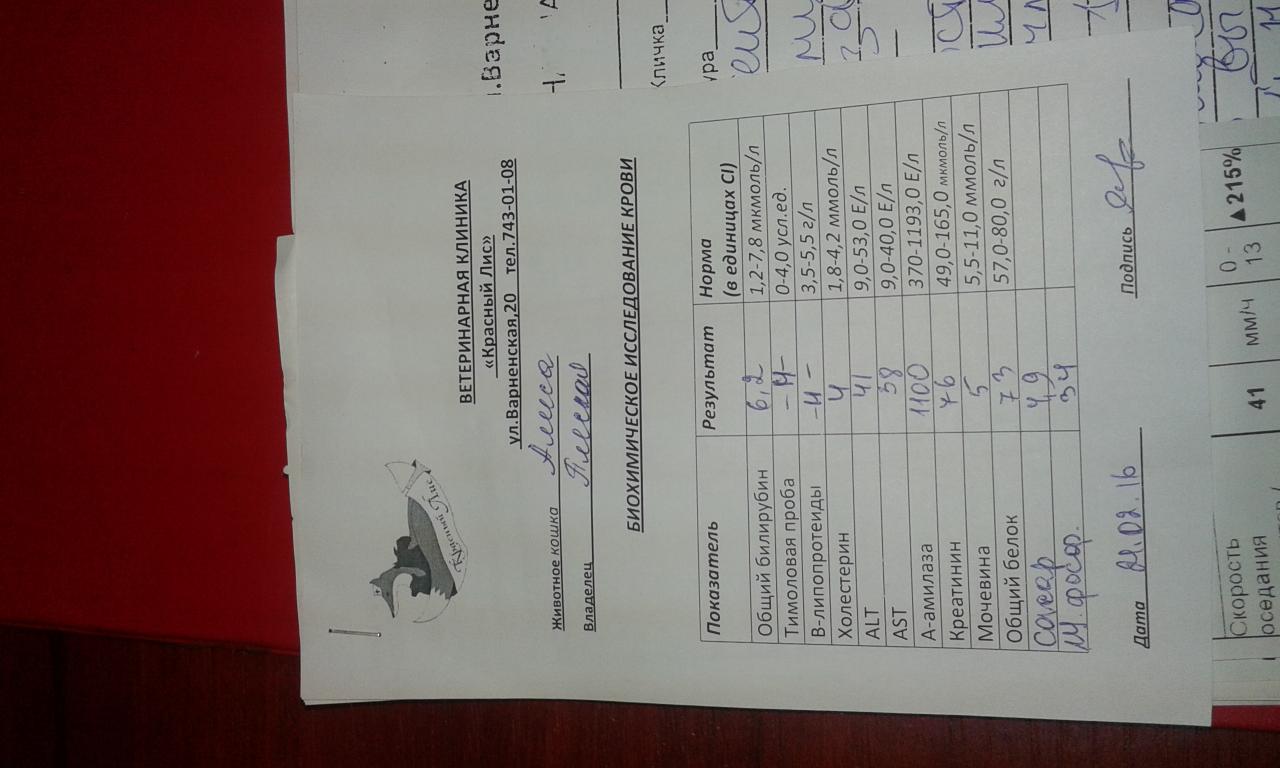 Красный Лис
ВЕТЕРИНАРНАЯ КЛИНИКА
«Красный Лис»
ул.Варненская,20 тел.743-01-08
Животное кошка Алиса
Владелец
БИОХИМИЧЕСКОЕ ИССЛЕДОВАНИЕ КРОВИ
Показатель Результат Норма
(в единицах CI)
Общий билирубин 6,2 1,2-7,8 мкмоль/л
Тимоловая проба -И- 0-4,0 усл.ед.
В-липопротеиды -И- 3,5-5,5 г/л
Холестерин 4 1,8-4,2 ммоль/л
ALT 41 9,0-53,0 Е/л
AST 38 9,0-40,0 Е/л
А-амилаза 1100 370-1193,0 Е/л
Креатинин 76 49,0-165,0 мкмоль/л
Мочевина 5 5,5-11,0 ммоль/л
Общий белок 73 57,0-80,0 г/л
Сахар 4,9
Щ. фосф. 34
Дата 24.02.16 Подпись
.Варне
Кличка
ура
Скорость 41 мм/ч 0 - ▲215%
оседания 13